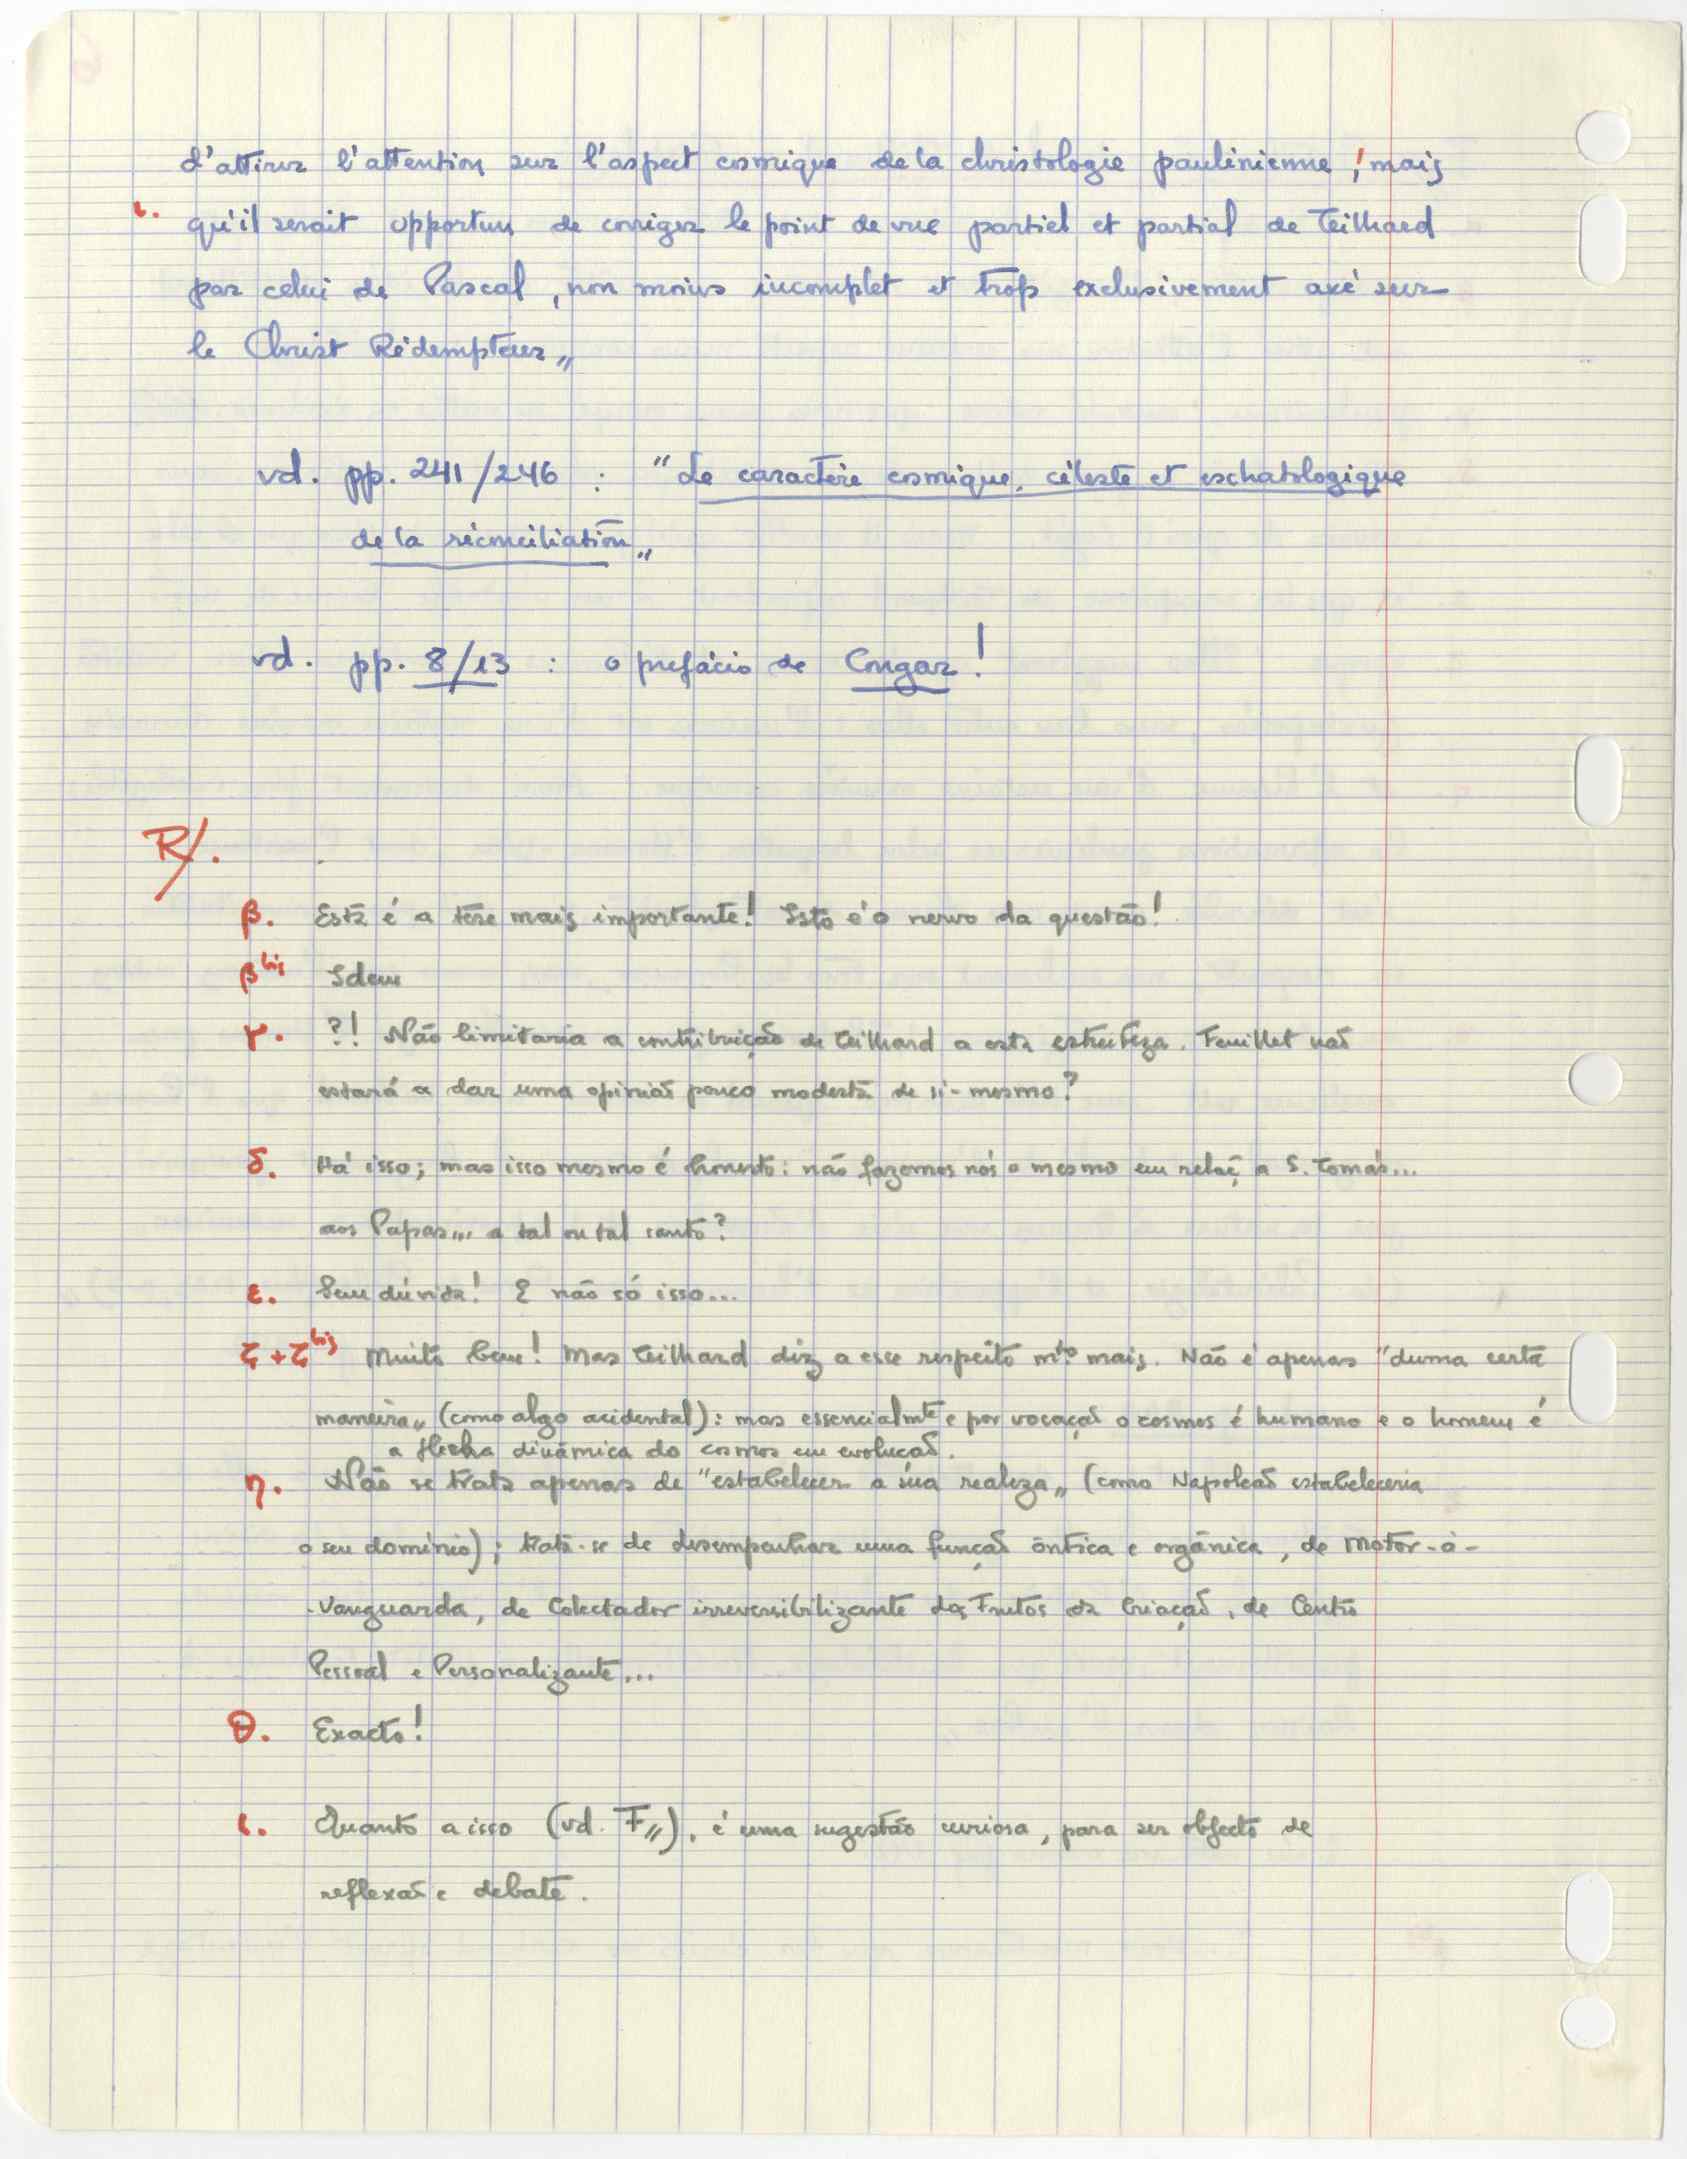 d'attirer l'attention sur l'aspect cosmique de la christologie paulinienne ! mais
ι. qu'il serait opportun de corriger le point de vue partiel et partial de Teilhard
par celui de Pascal, non moins incomplet et trop exclusivement axé sur
le Christ Rédempteur„
vd. pp. 241/246 : "Le caractère cosmique, céleste et eschatologique
de la réconciliation„
vd. pp. 8/13 : o prefácio de Congar !
R/.
β. Esta é a tese mais importante! Isto é o nervo da questão!
β bis Idem
γ. ?! Não limitaria a contribuição de Teilhard a esta estreiteza. Feuillet não
estará a dar uma opinião pouco modesta de si-mesmo?
δ. Há isso; mas isso mesmo é honesto: não fazemos nós o mesmo em relaç. a S. Tomás...
aos Papas... a tal ou tal santo?
ε. Sem dúvida! E não só isso...
ζ + ζ bis Muito bem! Mas Teilhard diz a esse respeito mto mais. Não é apenas "duma certa
maneira„ (como algo acidental): mas essencialmte e por vocação o cosmos é humano e o homem é
a flecha dinâmica do cosmos em evolução.
η. Não se trata apenas de "estabelecer a sua realeza„ (como Napoleão estabeleceria
o seu domínio); trata-se de desempenhar uma função ôntica e orgânica, de Motor-à-
-Vanguarda, de Colectador irreversibilizante dos Frutos da Criação, de Centro
Pessoal e Personalizante...
θ. Exacto!
ι. Quanto a isso (vd. F„), é uma sugestão curiosa, para ser objecto de
reflexão e debate.